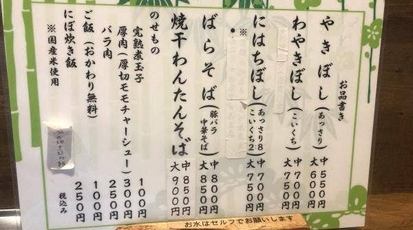 お品書き
やきぼし(あっさり) 中550円 大600円
わやきぼし(こいくち) 中700円 大750円
※にはちぼし(あっさり8 こいくち2) 中700円 大750円
ばらそば(豚バラ中華そば) 中800円 大850円
焼干わんたんそば 中850円 大900円
のせもの
完熟煮玉子 100円
厚肉(厚切モモチャーシュー) 300円
バラ肉 250円
ご飯(おかわり無料) 100円
にぼ炊き飯 250円
※国産米使用
税込み
お水はセルフでお願いします